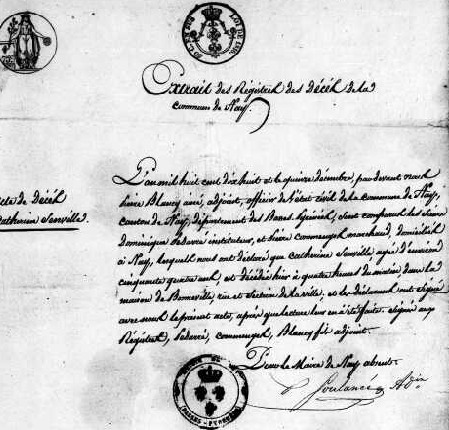 Extrait des Régistres des décès de la
commune de Nay.
acte de décès
Catherine Senville.
L'an mil huit cent dix huit et le quinze décembre, par devant nous
Pierre Blancq ainé, adjoint, officier de l'état civil de la commune de Nay,
canton de Nay, département des Basses Pyrénées, sont comparus les sieurs
dominique Paderré instituteur, et Pierre commengés marchand, domiciliés
à Nay, lesquels nous ont déclaré que catherine Senville, agée d'environ
cinquante quatre ans, est décédée hier à quatre heures du matin, dans la
maison de Bonneville, rue et Section de la ville, et les déclarants ont signé
avec nous le présent acte, après que lecture leur en a été faite. signés aux
Régistres, Paderré, commengés, Blancq fils adjoint.
Pour le Maire de Nay absent.